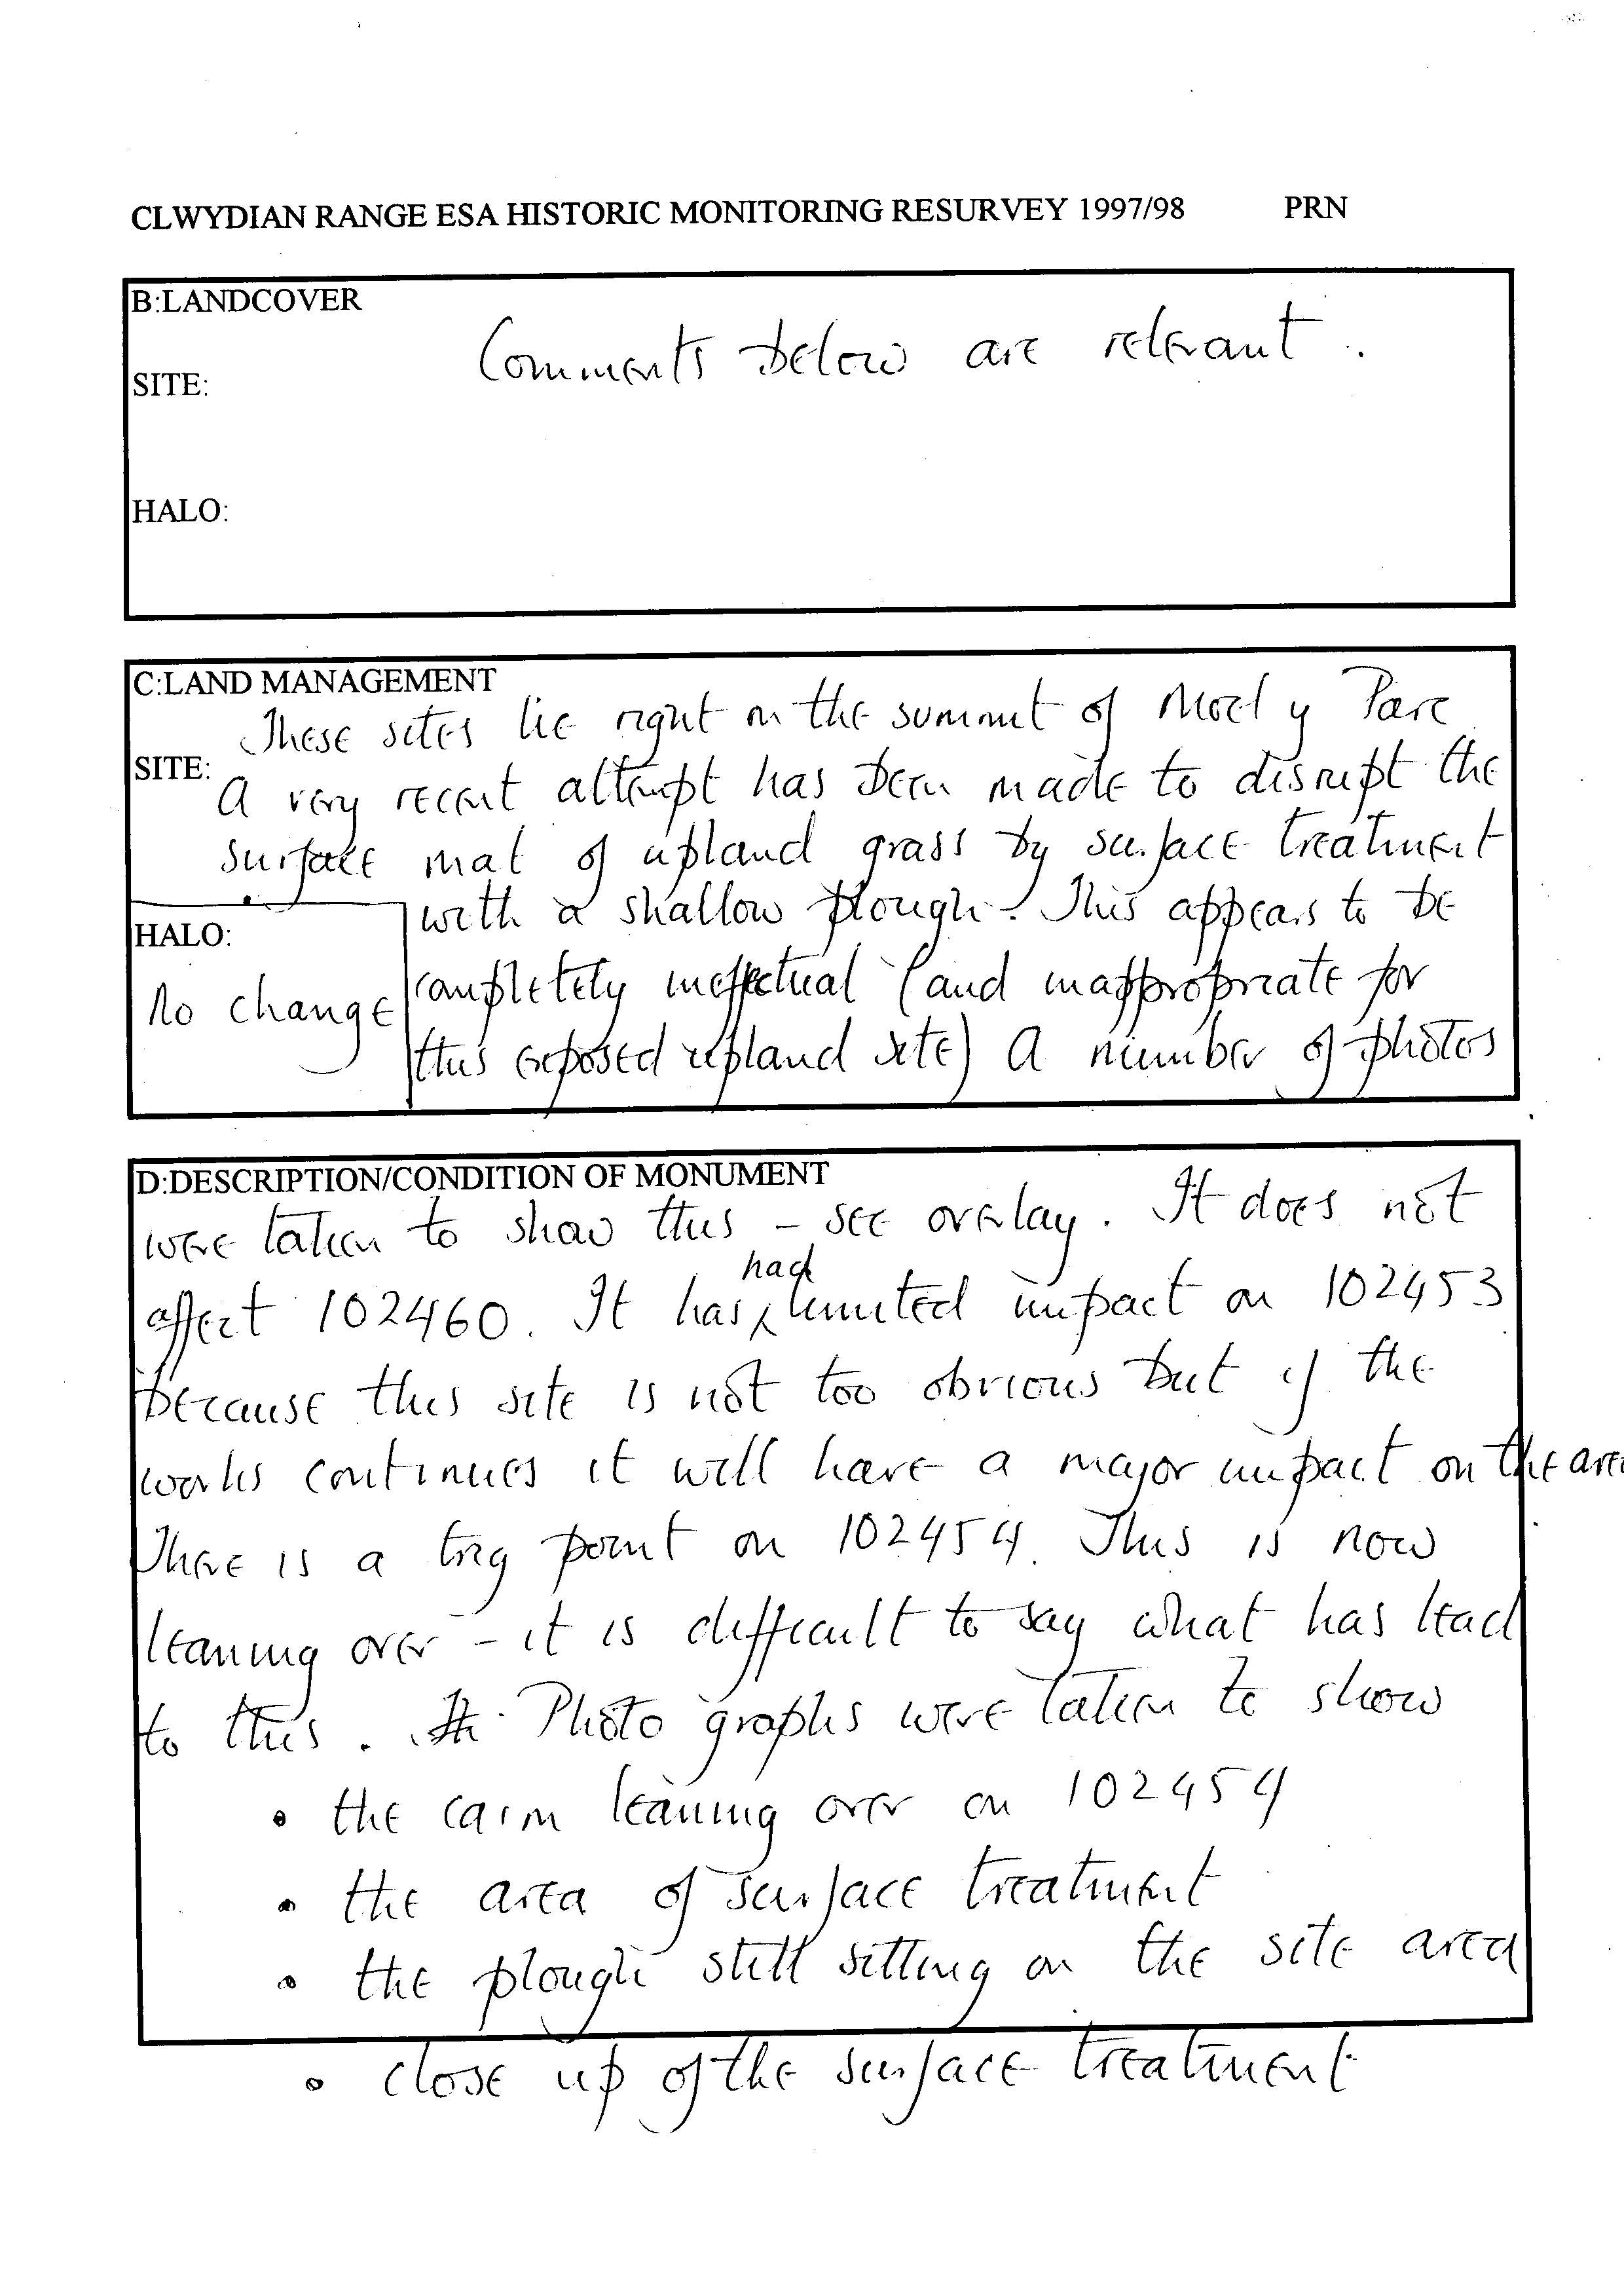 CLWYDIAN RANGE ESA HISTORIC MONITORING RESURVEY 1997/98 PRN
B:LANDCOVER
Comments below are relevant.
SITE:
HALO:
C:LAND MANAGEMENT
These sites lie right on the summit of Moel y Parc
SITE:
A very recent attempt has been made to disrupt the
surface mat of upland grass by surface treatment
with a shallow plough. This appears to be
HALO:
completely ineffectual (and inappropriate for
No change
this exposed upland site) A number of photos
D:DESCRIPTION/CONDITION OF MONUMENT
were taken to show this - see overlay. It does not
affect 102460. It has had limited impact on 102453
because this site is not too obvious but if the
works continues it will have a major impact on the area
There is a trig point on 102454. This is now
leaning over - it is difficult to say what has lead
to this. Photo graphs were taken to show
• the cairn leaning over on 102454
• the area of surface treatment
• the plough still sitting on the site area
• close up of the surface treatment